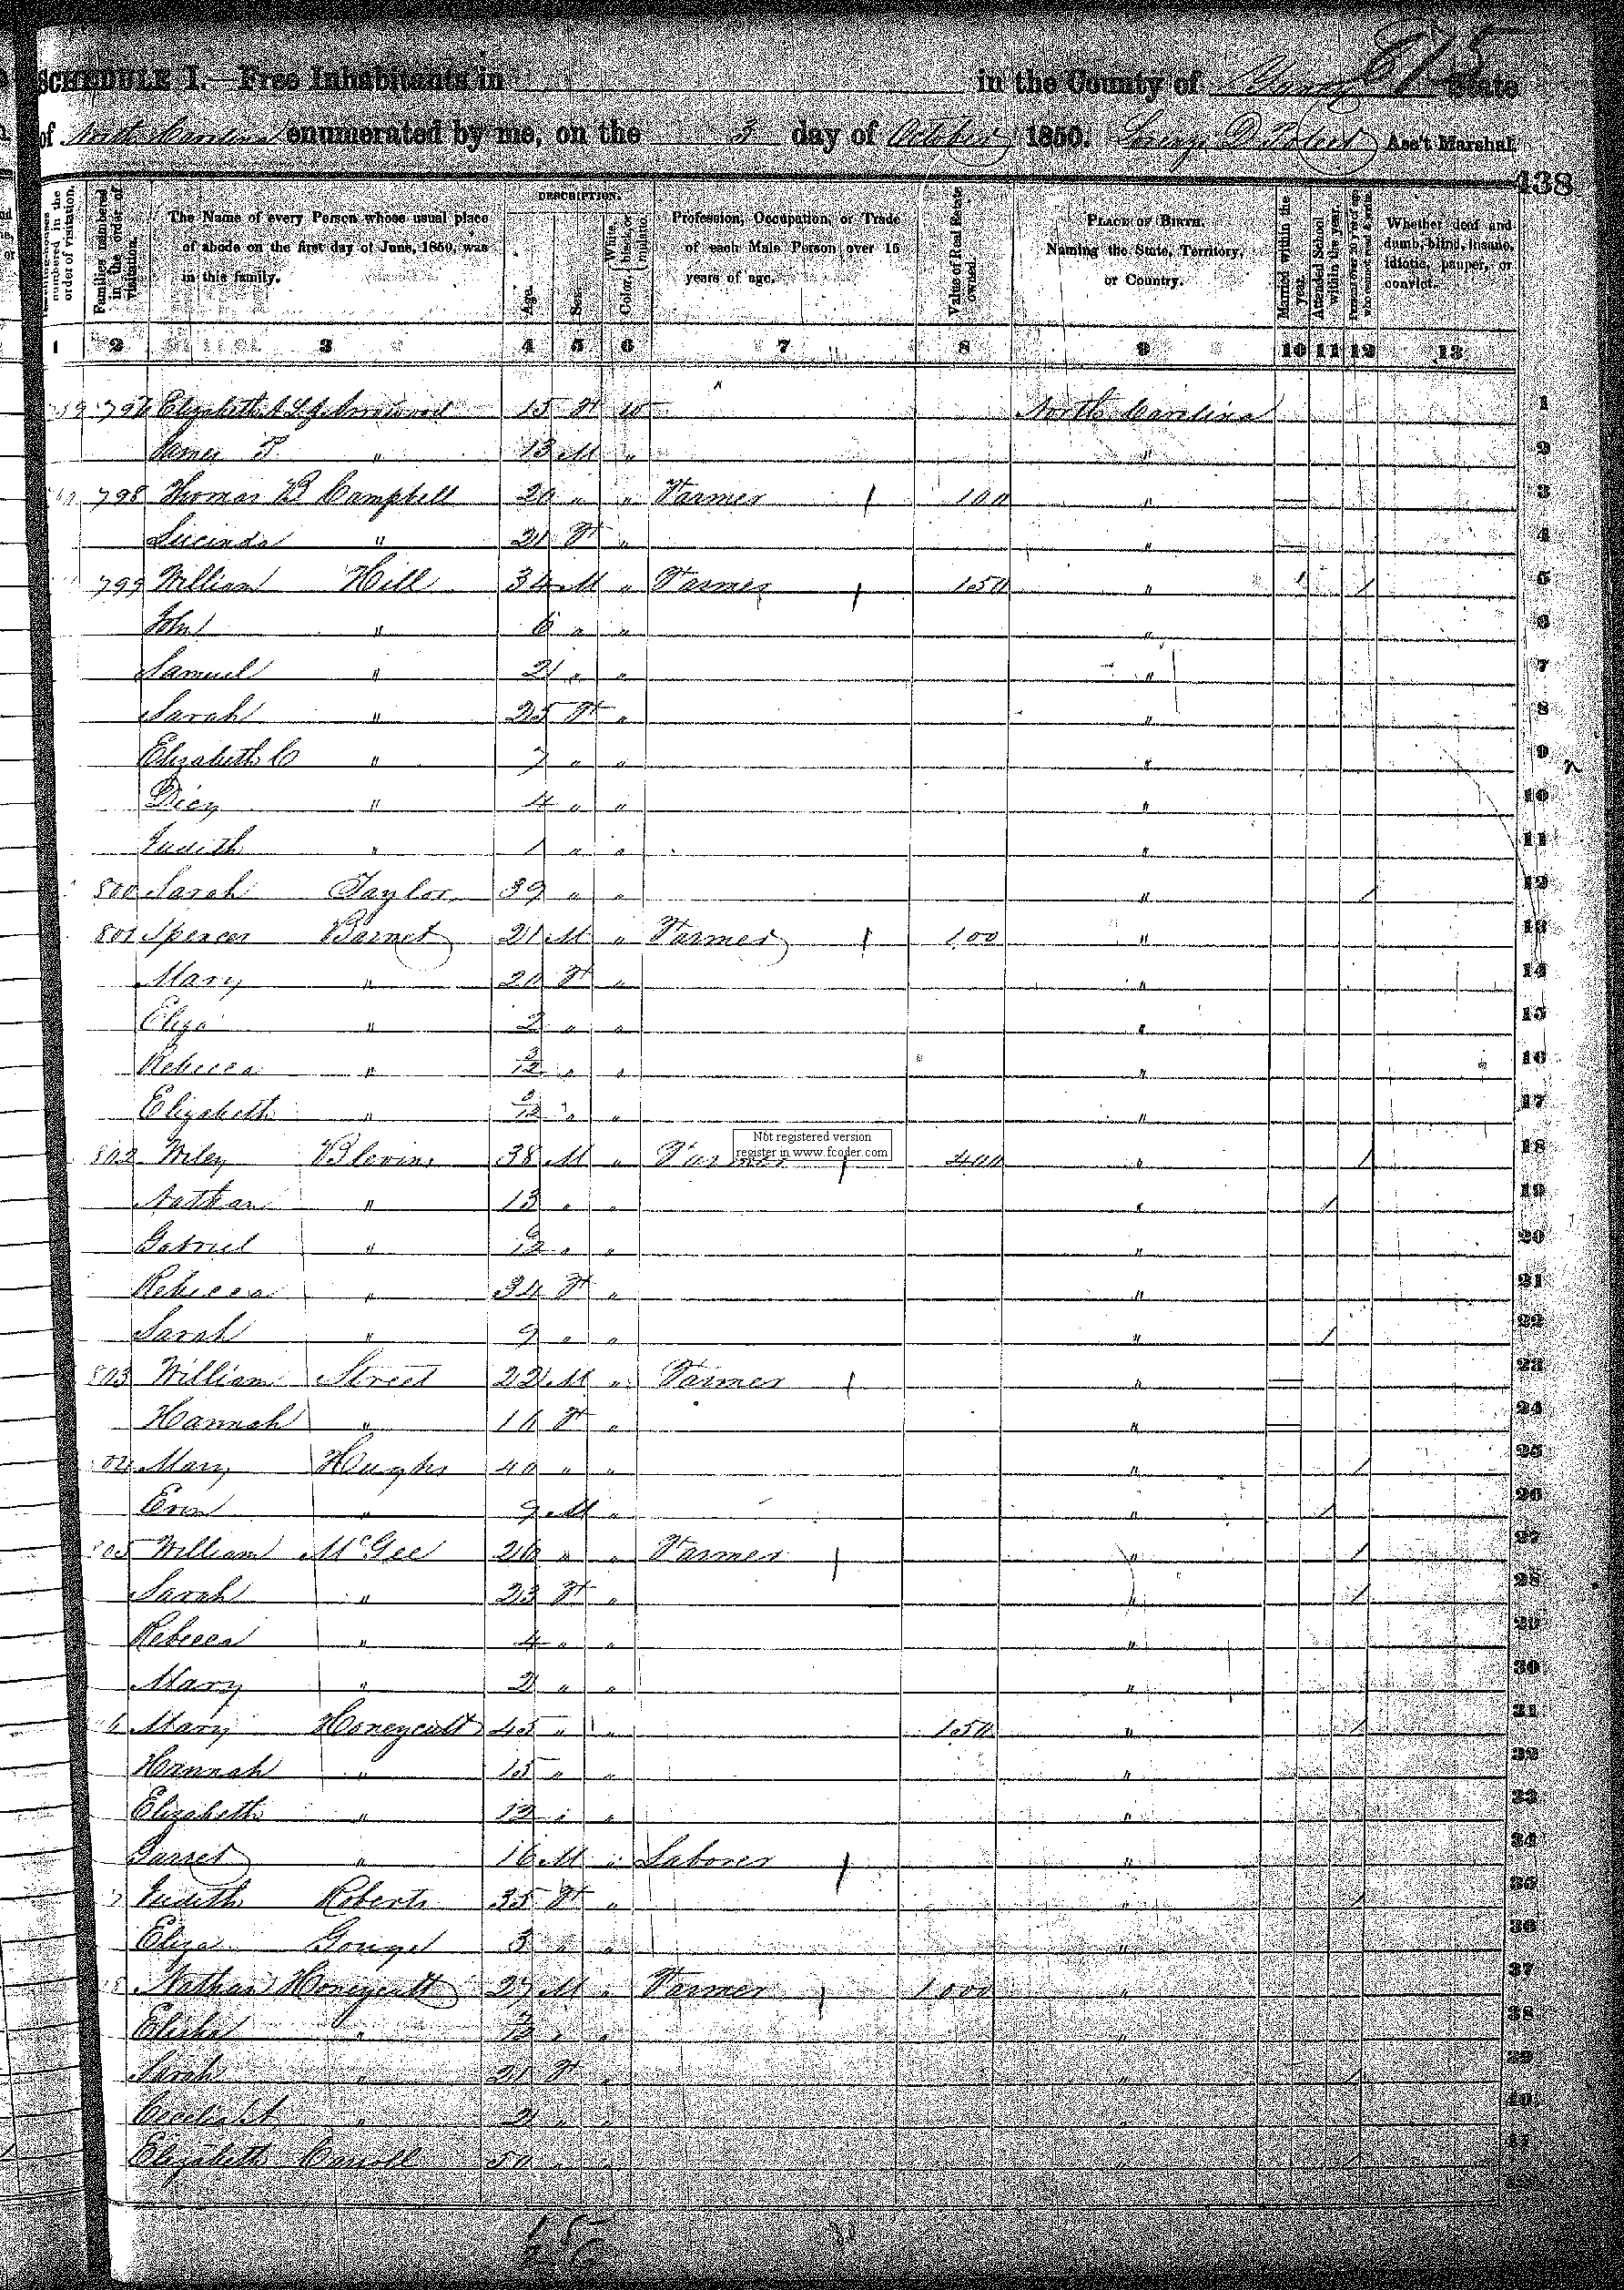 675
SCHEDULE I.—Free Inhabitants in in the County of Yancy State
of North Carolina enumerated by me, on the 3 day of October 1850. Ass't Marshal.
438
Dwelling-houses numbered in the order of visitation.
Families numbered in the order of visitation.
The Name of every Person whose usual place of abode on the first day of June, 1850, was in this family.
DESCRIPTION.
Age.
Sex.
Color, White, black, or mulatto.
Profession, Occupation, or Trade of each Male Person over 15 years of age.
Value of Real Estate owned.
PLACE OF BIRTH. Naming the State, Territory, or Country.
Married within the year.
Attended School within the year.
Persons over 20 y'rs of age who cannot read & write.
Whether deaf and dumb, blind, insane, idiotic, pauper, or convict.
1 2 3 4 5 6 7 8 9 10 11 12 13
797 Elizabeth 15 F W North Carolina 1
James " 13 M " " 2
798 Thomas B Campbell 20 " " Farmer 100 " 3
Lucinda " 21 F " " 4
799 William Hill 34 M " Farmer 150 " 1 / 5
John " 6 " " " 6
Samuel " 2 " " " 7
Sarah " 25 F " " 8
Elizabeth C " 7 " " " 9
Dicy " 4 " " " 10
Judith " 1 " " " 11
800 Sarah Taylor 39 " " " / 12
801 Spencer Barnet 21 M " Farmer 100 " 13
Mary " 20 F " " 14
Eliza " 2 " " " 15
Rebecca " 3/12 " " " 16
Elizabeth " 3/12 " " " 17
802 Wiley Blevins 38 M " Farmer 400 " / 18
Not registered version
register in www.fcoder.com
Nathan " 13 " " " / 19
Gabriel " 9/12 " " " 20
Rebecca " 34 F " " 21
Sarah " 9 " " " / 22
803 William Street 22 M " Farmer " 23
Hannah " 16 F " " 24
804 Mary Hughs 40 " " " / 25
" 9 M " " / 26
805 William McGee 26 " " Farmer " / 27
Sarah " 23 F " " / 28
Rebecca " 4 " " " 29
Mary " 2 " " " 30
6 Mary Honeycutt 45 " " 150 " / 31
Hannah " 15 " " " 32
Elizabeth " 12 " " " 33
Garret " 16 M " Laborer " 34
7 Judith Roberts 35 F " " / 35
Eliza Gouge 3 " " " 36
8 Nathan Honeycutt 27 M " Farmer 1000 " 37
Elisha " " " " 38
Sarah " 21 F " " / 39
" 2 " " " 40
Elizabeth Carroll 50 " " " / 41